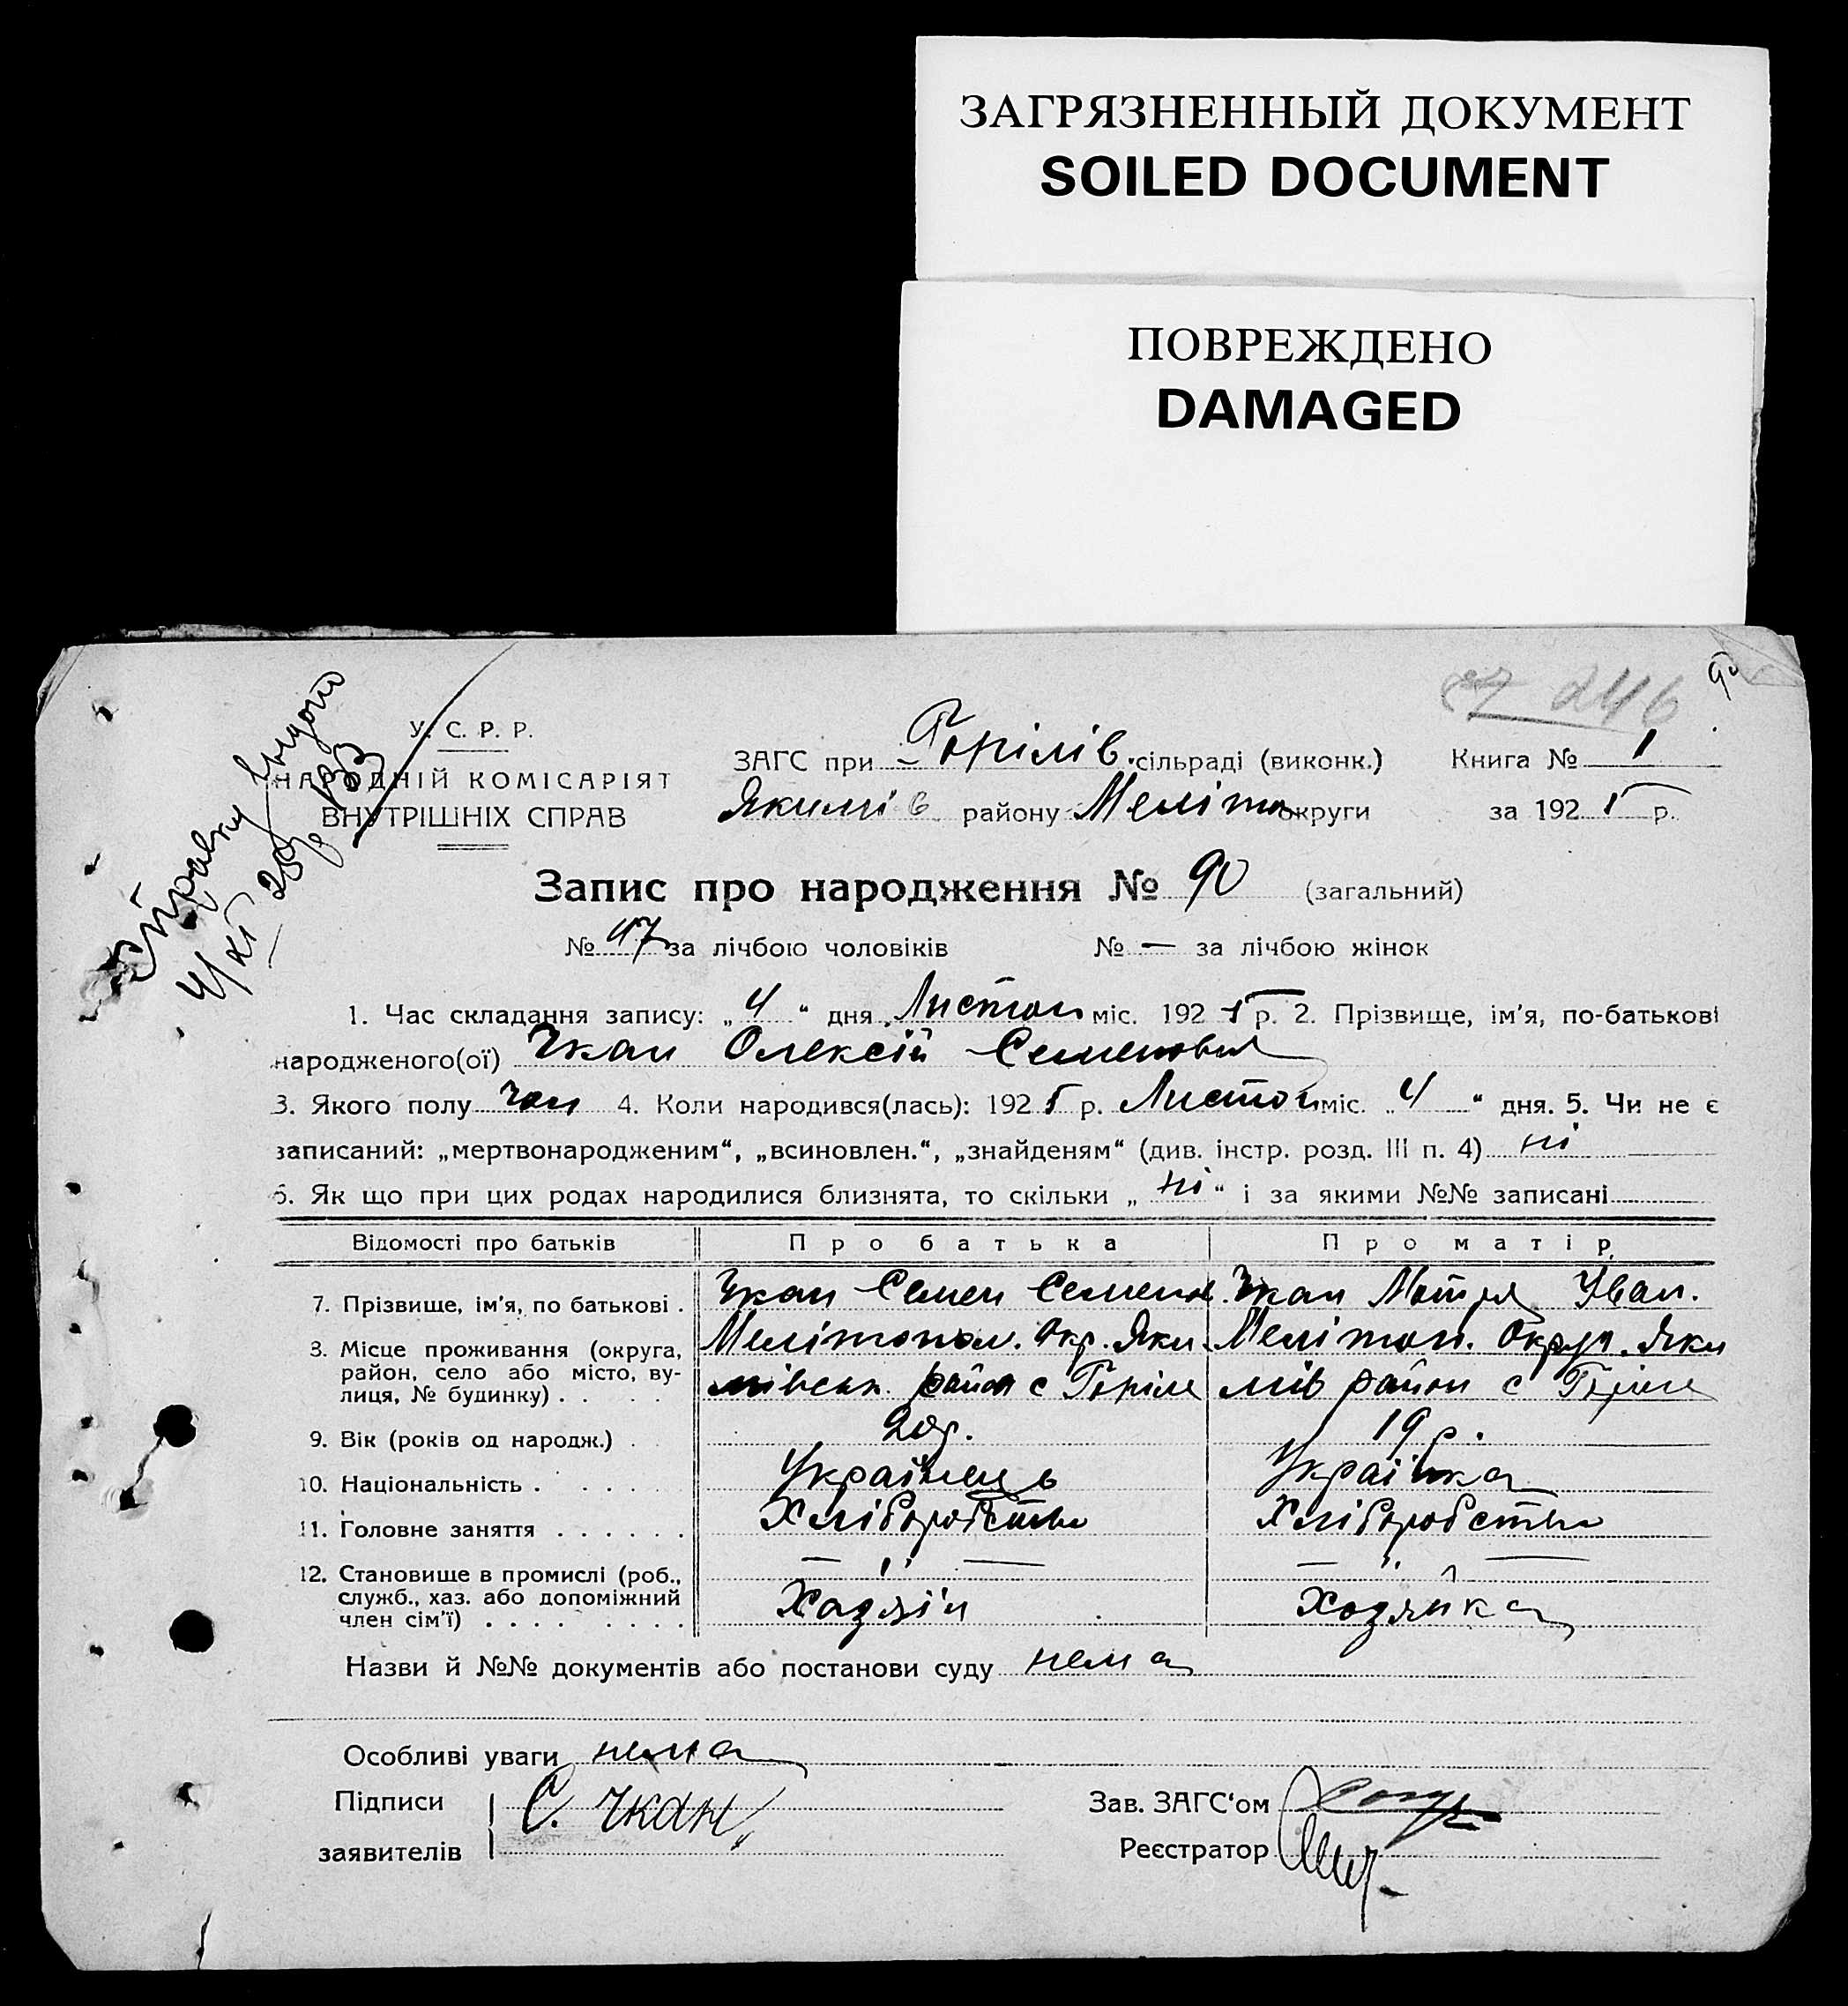 ЗАГРЯЗНЕННЫЙ ДОКУМЕНТ
SOILED DOCUMENT
ПОВРЕЖДЕНО
DAMAGED
246
90
Справку выдано
4/XI 1933
У. С. Р. Р.
НАРОДНІЙ КОМІСАРІЯТ
ВНУТРІШНІХ СПРАВ
ЗАГС при Горілів. сільраді (виконк.) Книга № 1
Якимів району Меліт округи за 1925 р.
Запис про народження № 90 (загальний)
№ 47 за лічбою чоловіків № — за лічбою жінок
1. Час складання запису: „4“ дня Листоп міс. 1925 р. 2. Прізвище, ім'я, по-батькові
народженого(ої) Чкан Олексій Семенович
3. Якого полу чол 4. Коли народився(лась): 1925 р. Листоп міс. „4“ дня. 5. Чи не є
записаний: „мертвонародженим“, „всиновлен.“, „знайденям“ (див. інстр. розд. III п. 4) ні
6. Як що при цих родах народилися близнята, то скільки „ні“ і за якими №№ записані
Відомості про батьків Про батька Про матір
7. Прізвище, ім'я, по батькові . Чкан Семен Семенов. Чкан Мотря Іван.
8. Місце проживання (округа, район, село або місто, вулиця, № будинку) . . Мелітопол. Окр. Якимівськ. район с Горіле Мелітоп. Округ. Якимів район с Горіле
9. Вік (років од народж.) . 20р. 19р.
10. Національність . . . . . Українець Українка
11. Головне заняття . . . . . . Хліборобство Хліборобство
12. Становище в промислі (роб., служб., хаз. або допоміжний член сім'ї) . . . . . . . . — " — — " —
Хазяїн Хазяйка
Назви й №№ документів або постанови суду нема
Особливі уваги нема
Підписи С. Чкан Зав. ЗАГС'ом
заявителів Реєстратор